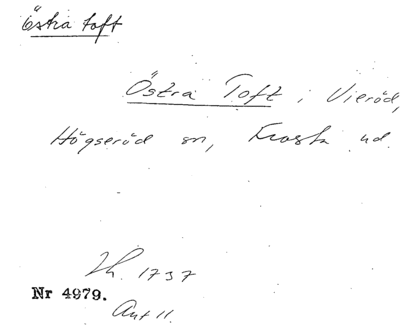 Östra toft
Östra Toft i Vieröd,
Högseröd sn, Frosta hd
Jh. 1737
Nr 4979.
Ant 11.